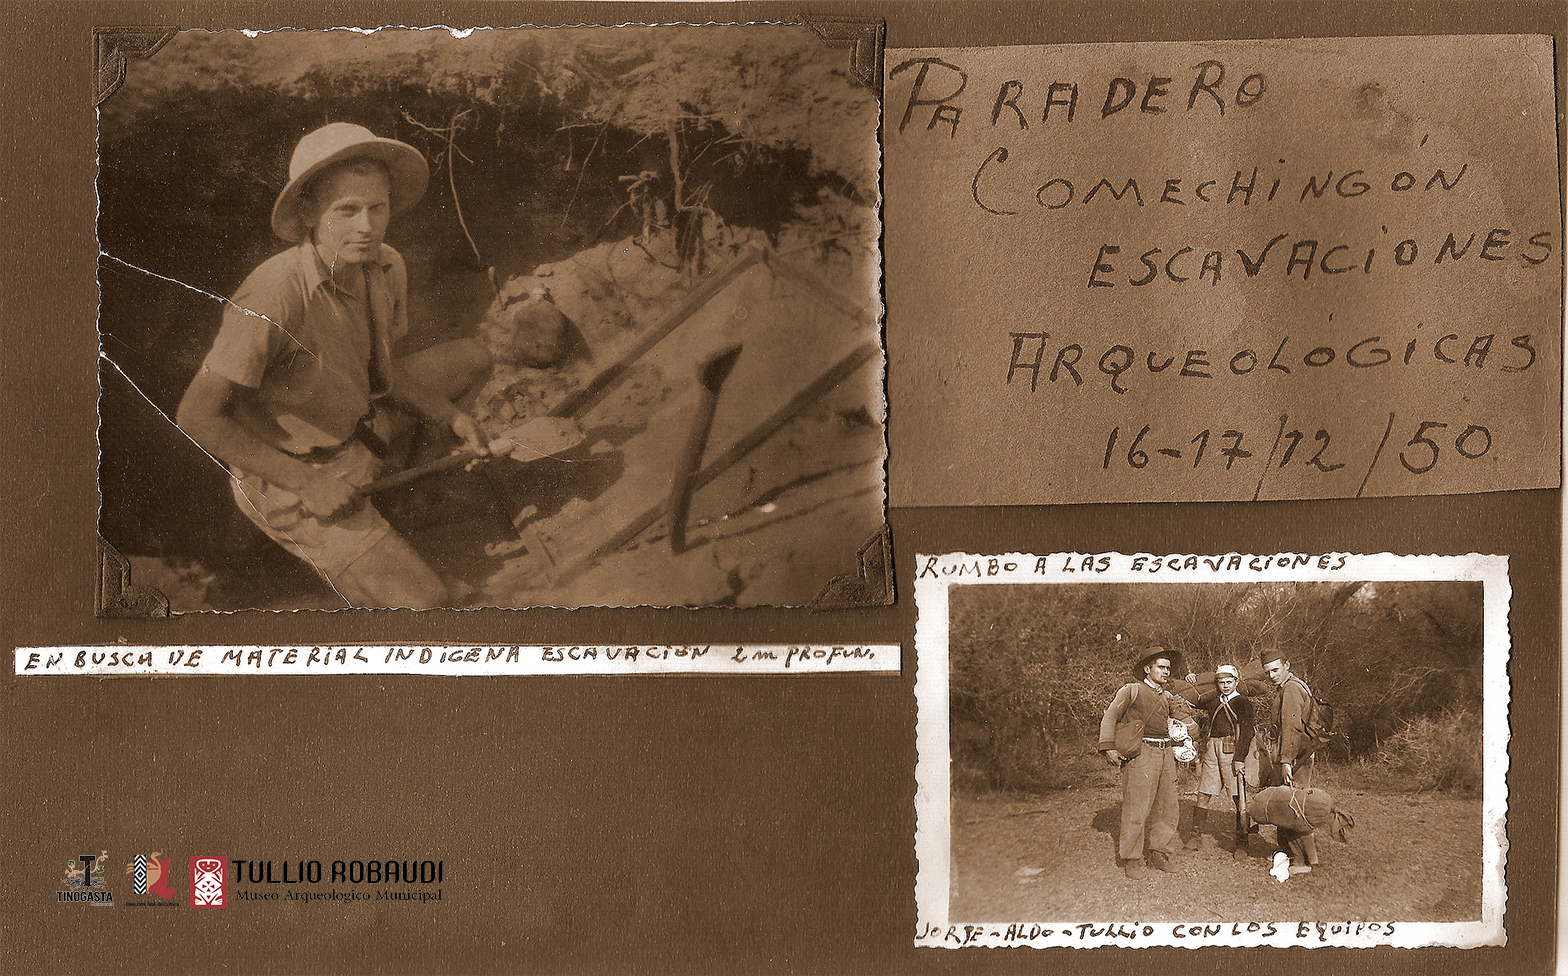 PARADERO
COMECHINGÓN
ESCAVACIONES
ARQUEOLÓGICAS
16-17/12/50
EN BUSCA DE MATERIAL INDIGENA ESCAVACION 2 m PROFUN.
RUMBO A LAS ESCAVACIONES
JORJE-ALDO-TULLIO CON LOS EQUIPOS
TINOGASTA
TULLIO ROBAUDI
Museo Arqueologico Municipal